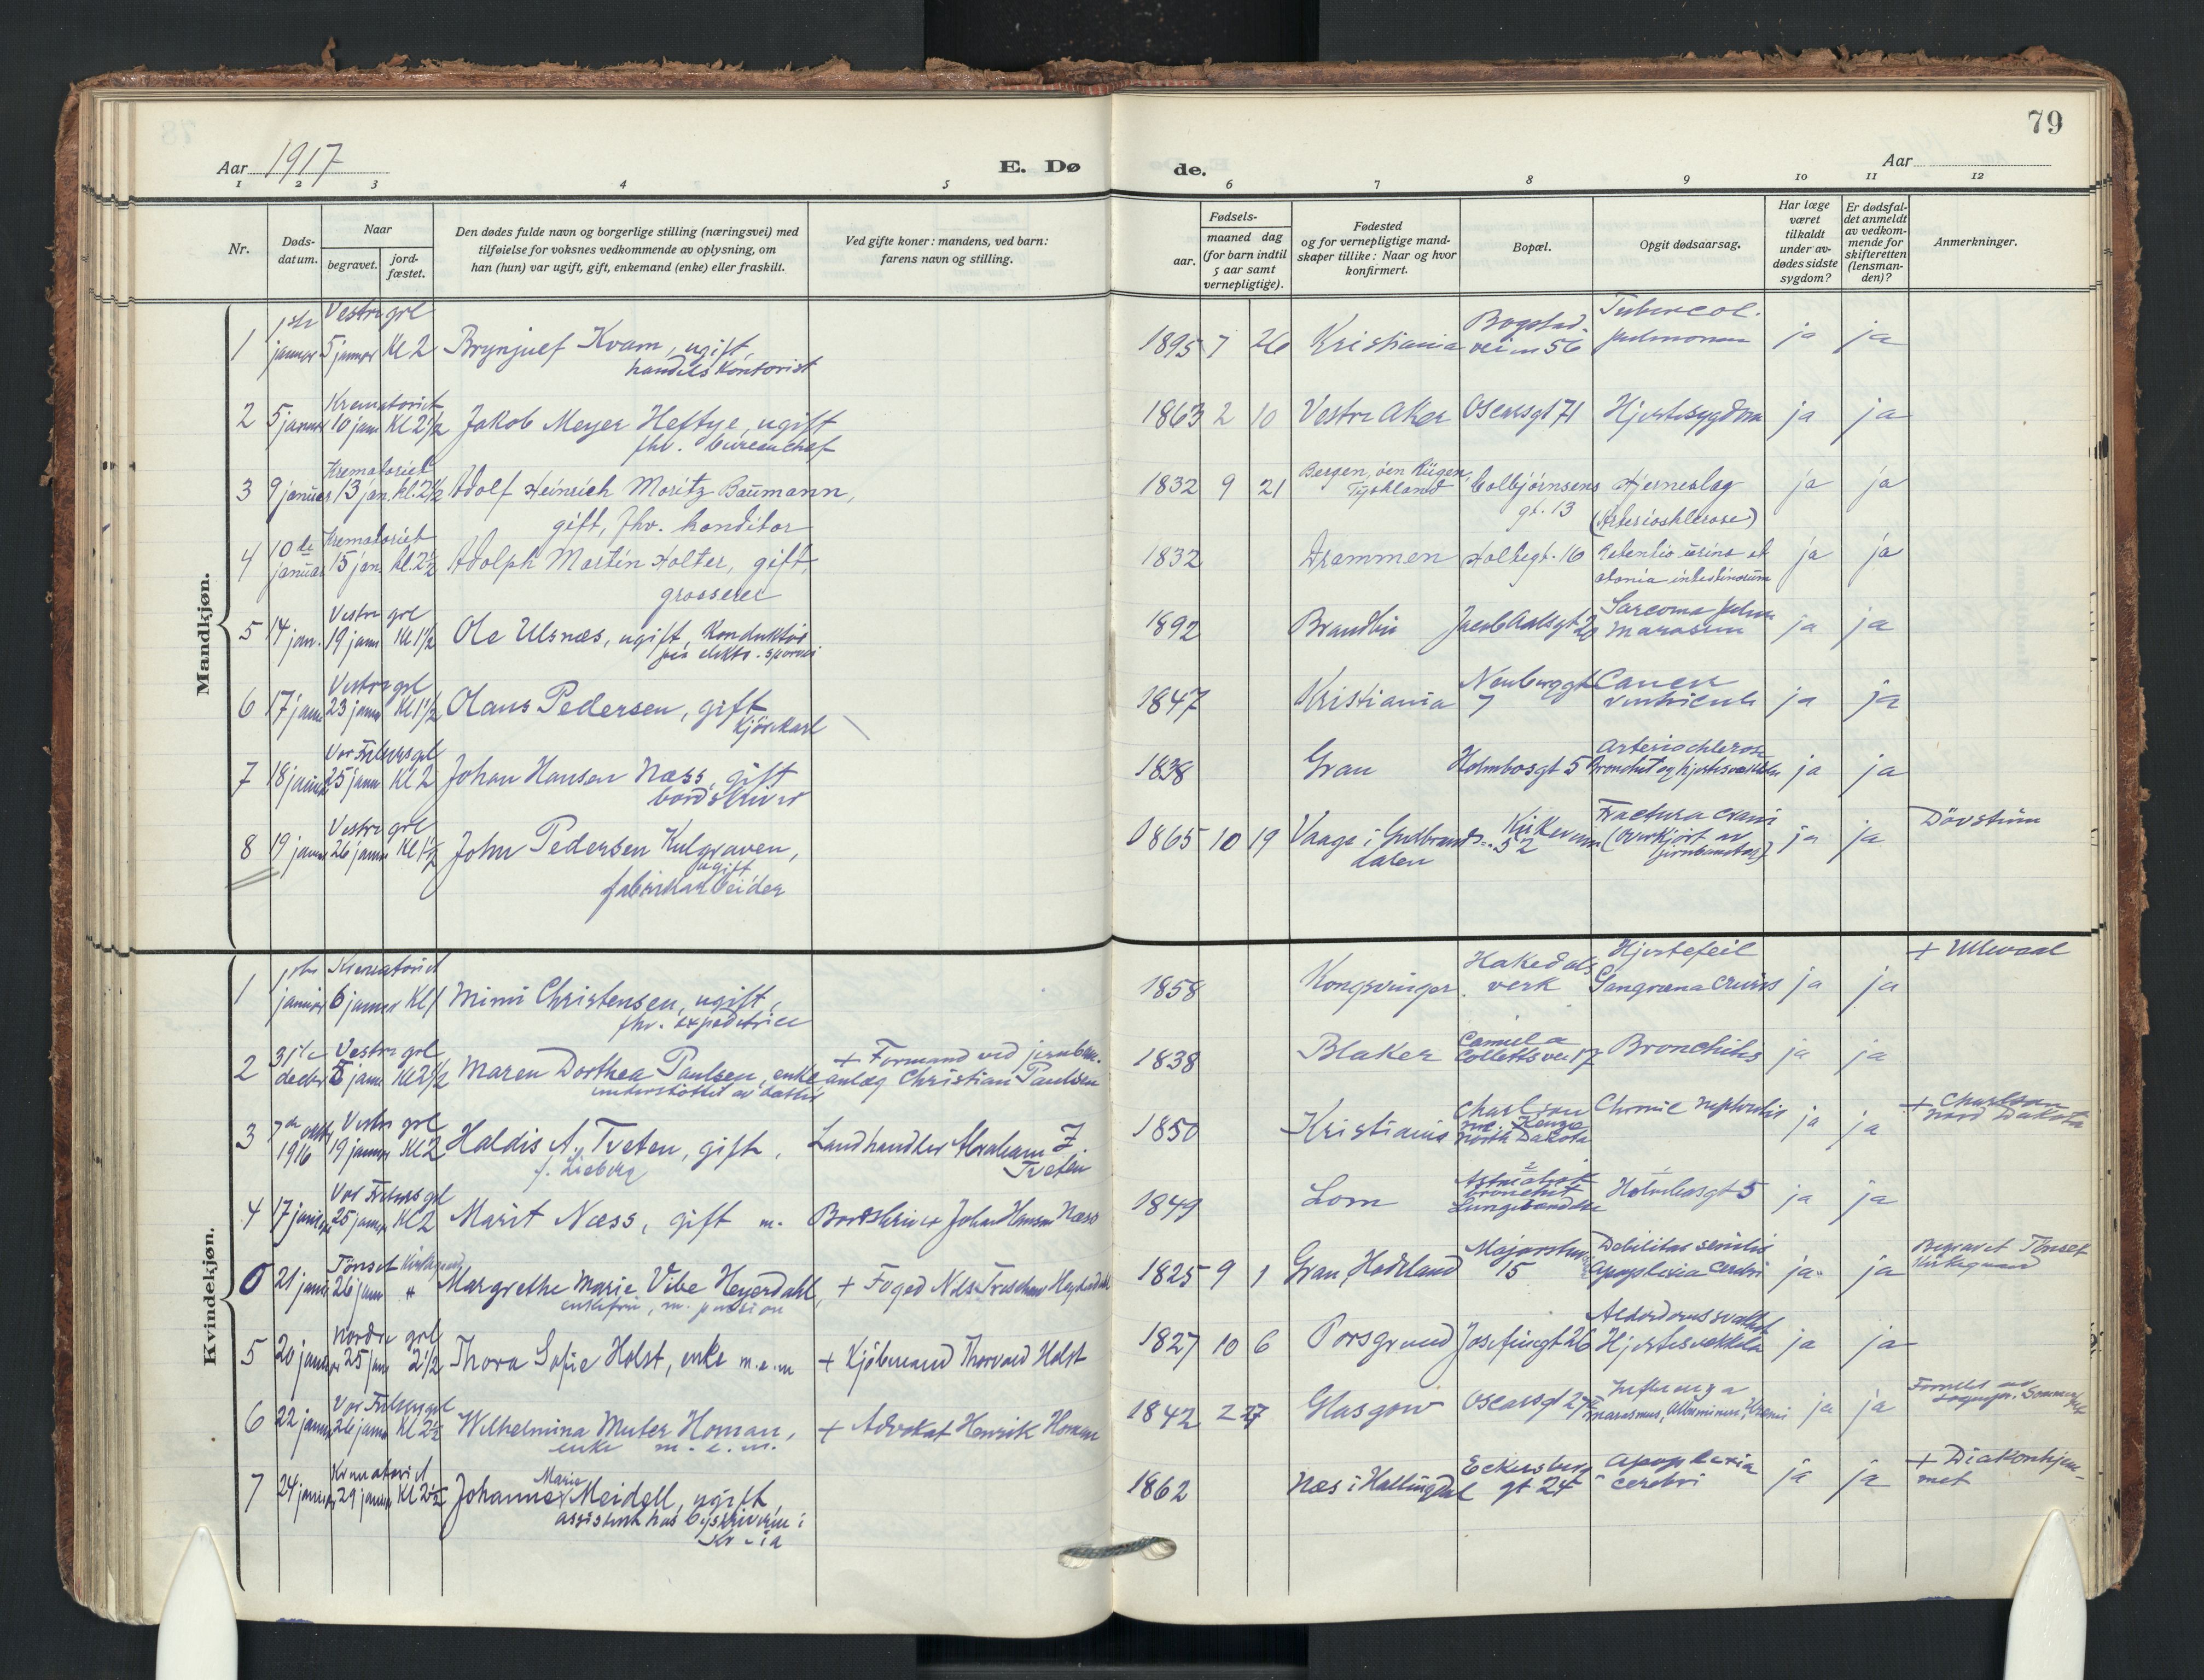 79
Aar 1917
E. Dø
de.
Aar
1 2 3 4 5 6 7 8 9 10 11 12
Nr.
Døds-
datum.
Naar
begravet.
jord-
fæstet.
Den dødes fulde navn og borgerlige stilling (næringsvei) med
tilføielse for voksnes vedkommende av oplysning, om
han (hun) var ugift, gift, enkemand (enke) eller fraskilt.
Ved gifte koner: mandens, ved barn:
farens navn og stilling.
Fødsels-
aar.
maaned dag
(for barn indtil
5 aar samt
vernepligtige).
Fødested
og for vernepligtige mand-
skaper tillike: Naar og hvor
konfirmert.
Bopæl.
Opgit dødsaarsag.
Har læge
været
tilkaldt
under av-
dødes sidste
sygdom?
Er dødsfal-
det anmeldt
av vedkom-
mende for
skifteretten
(lensman-
den)?
Anmerkninger.
Mandkjøn.
1 1ste januar Vestre grl 5 januar Kl 2 Brynjulf Kvam, ugift,
handelskontorist
1895 7 26 Kristiania Bogstad-
veien 56 Tubercol.
pulmonum ja ja
2 5 januar Krematoriet 10 janr Kl 2 1/2 Jakob Meyer Heftye, ugift
fhv. bureauchef
1863 2 10 Vestre Aker Oscarsgt 71 Hjertesygdom ja ja
3 9 januar Krematoriet 13 jan. kl. 2 1/2 Adolf Heinrich Moritz Baumann,
gift, fhv. konditor
1832 9 21 Bergen, öen Rügen,
Tyskland Colbjörnsens
gt. 13 Hjerneslag
(Arteriosklerose) ja ja
4 10de januar Krematoriet 15 jan. Kl. 2 1/2 Adolph Martin Holter, gift,
grosserer
1832 Drammen Holtegt. 16 Retentio urinæ et
atonia intestinorum ja ja
5 14 jan. Vestre grl 19 janr Kl 1 1/2 Ole Ulsnæs, ugift, Konduktör
på elektr. sporvei
1892 Brandbu Jacob Aalsgt Sarcoma
ja ja
6 17 janr Vestre grl 23 janr Kl 1 1/2 Olaus Pedersen, gift
kjörekarl
1847 Kristiania Neuberggt
7 Cancer
ventriculi ja ja
7 18 januar Vor Frelsers grl 25 janr Kl 2 Johan Hansen Næss, gift
bordskriver
1838 Gran Holmbosgt 5 Arteriosclerose
Bronchit og hjertesvækkelse ja ja
8 19 januar Vestre grl 26 janr Kl 1 1/2 John Pedersen Kulgraven,
ugift
fabrikarbeider
1865 10 19 Vaage i Gudbrands-
dalen Kirkeveien
52 Fractura cranii
(Overkjört av
) ja ja Dövstum
Kvindekjøn.
1 1ste januar Krematoriet 6 januar Kl 1 Mimi Christensen, ugift,
fhv. expeditrice
1858 Kongsvinger Hakedals
verk Hjertefeil
Gangræna cruris ja ja + Ullevaal
2 31te decbr Vestre grl 5 janr Kl 2 1/2 Maren Dorthea Paulsen, enke
understöttet av datter + Formand ved jernban.
anlæg Christian Paulsen
1838 Blaker Camilla
Colletts vei 17 Bronchitis ja ja
3 7de 1916 Vestre grl 19 januar Kl 2 Haldis A. Tveten, gift,
Landhandler Abraham Z
Tveten
1850 Kristiania Charlson
mc. Kenzie
North Dakota Chronic nephritis ja ja + Charlson
Nord Dakota
4 17 januar Vor Frelsers grl 25 januar Kl 2 Marit Næss, gift m. Bordskriver Johan Hansen Næss
1849 Lom Astmatisk
bronchit
Holmbosgt 5 ja ja
0 21 janr Tönset Kirkegaard 26 janr " Margrethe Marie Vibe Heyerdahl,
enkefru, m. pension + Foged Nils Treschow Heyerdahl
1825 9 1 Gran, Hadeland Majorstuv
15 Debilitas senilis
Apoplexia cerebri ja ja Begravet Tönset
Kirkegaard
5 20 januar Nordre grl 25 janr 2 1/2 Thora Sofie Holst, enke m.e.m + Kjöbmand Thorvald Holst
1827 10 6 Porsgrund Josefinegt 26 Alderdomssvakhet
Hjertesvækkelse ja ja
6 22 januar Vor Frelsers grl 26 janr Kl 2 1/2 Wilhelmina Muter Homan,
enke m. e. m. + Advokat Henrik Homan
1842 2 27 Glasgow Oscarsgt 27 Influenza
marasmus, Albuminuri, Uræmi ja ja
7 24 januar Krematoriet 29 januar Kl 2 1/2 Johanne Marie Meidell, ugift,
assistent hos byskriveren i
Kr-ia
1862 Næs i Hallingdal Eckersberg
gt 24 Apoplexia
cerebri ja ja + Diakonhjem-
met